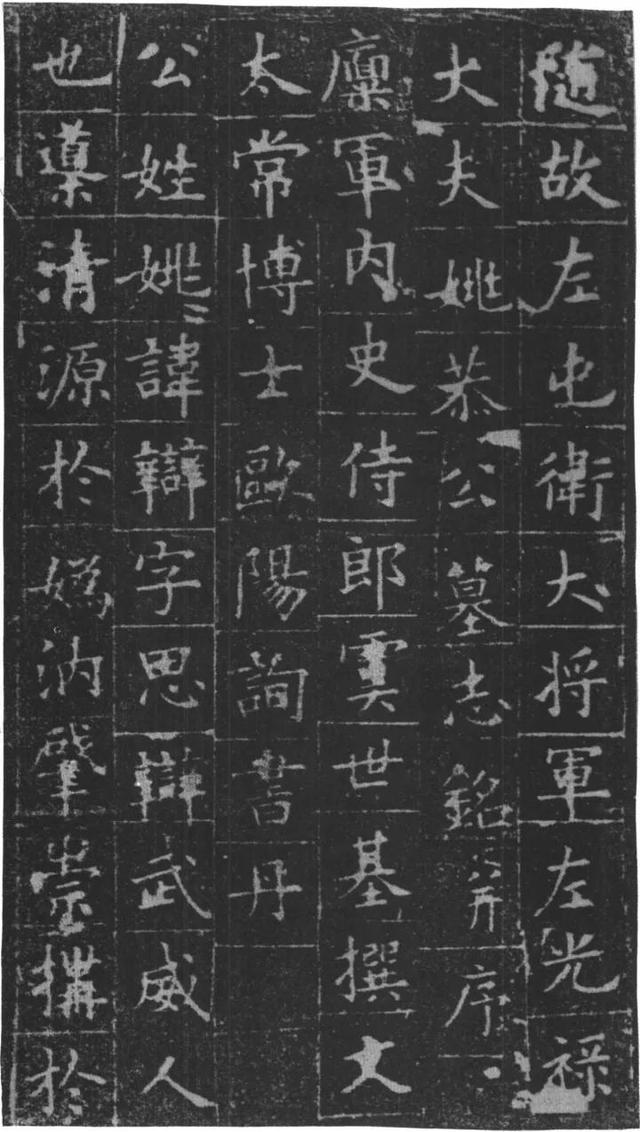 随故左屯衛大将軍左光禄
大夫姚恭公墓志銘并序
稟軍内史侍郎虞世基撰文
太常博士歐陽詢書丹
公姓姚諱辯字思辯武威人
也導清源於嬀汭肇崇搆於